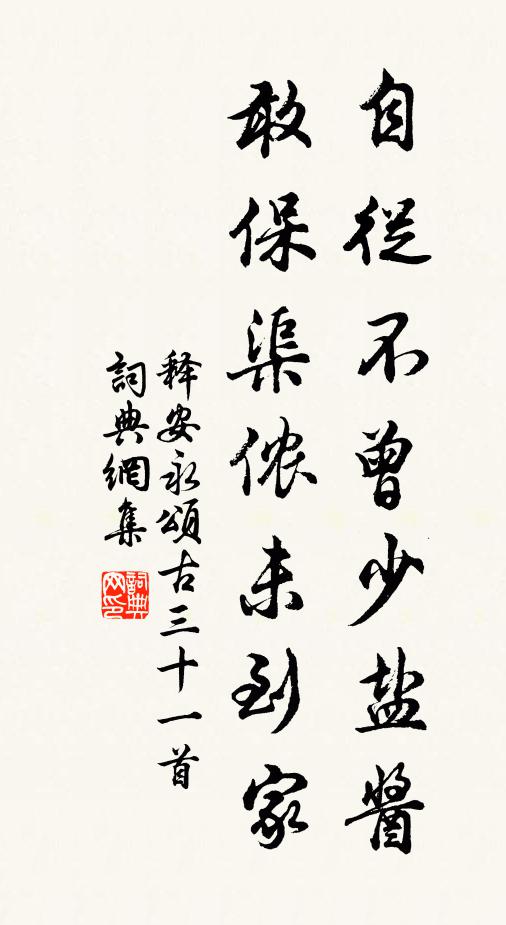 自從不曾少盐醬
敢保渠侬未到家
释安永頌古三十一首
詞典網集
詞典网印